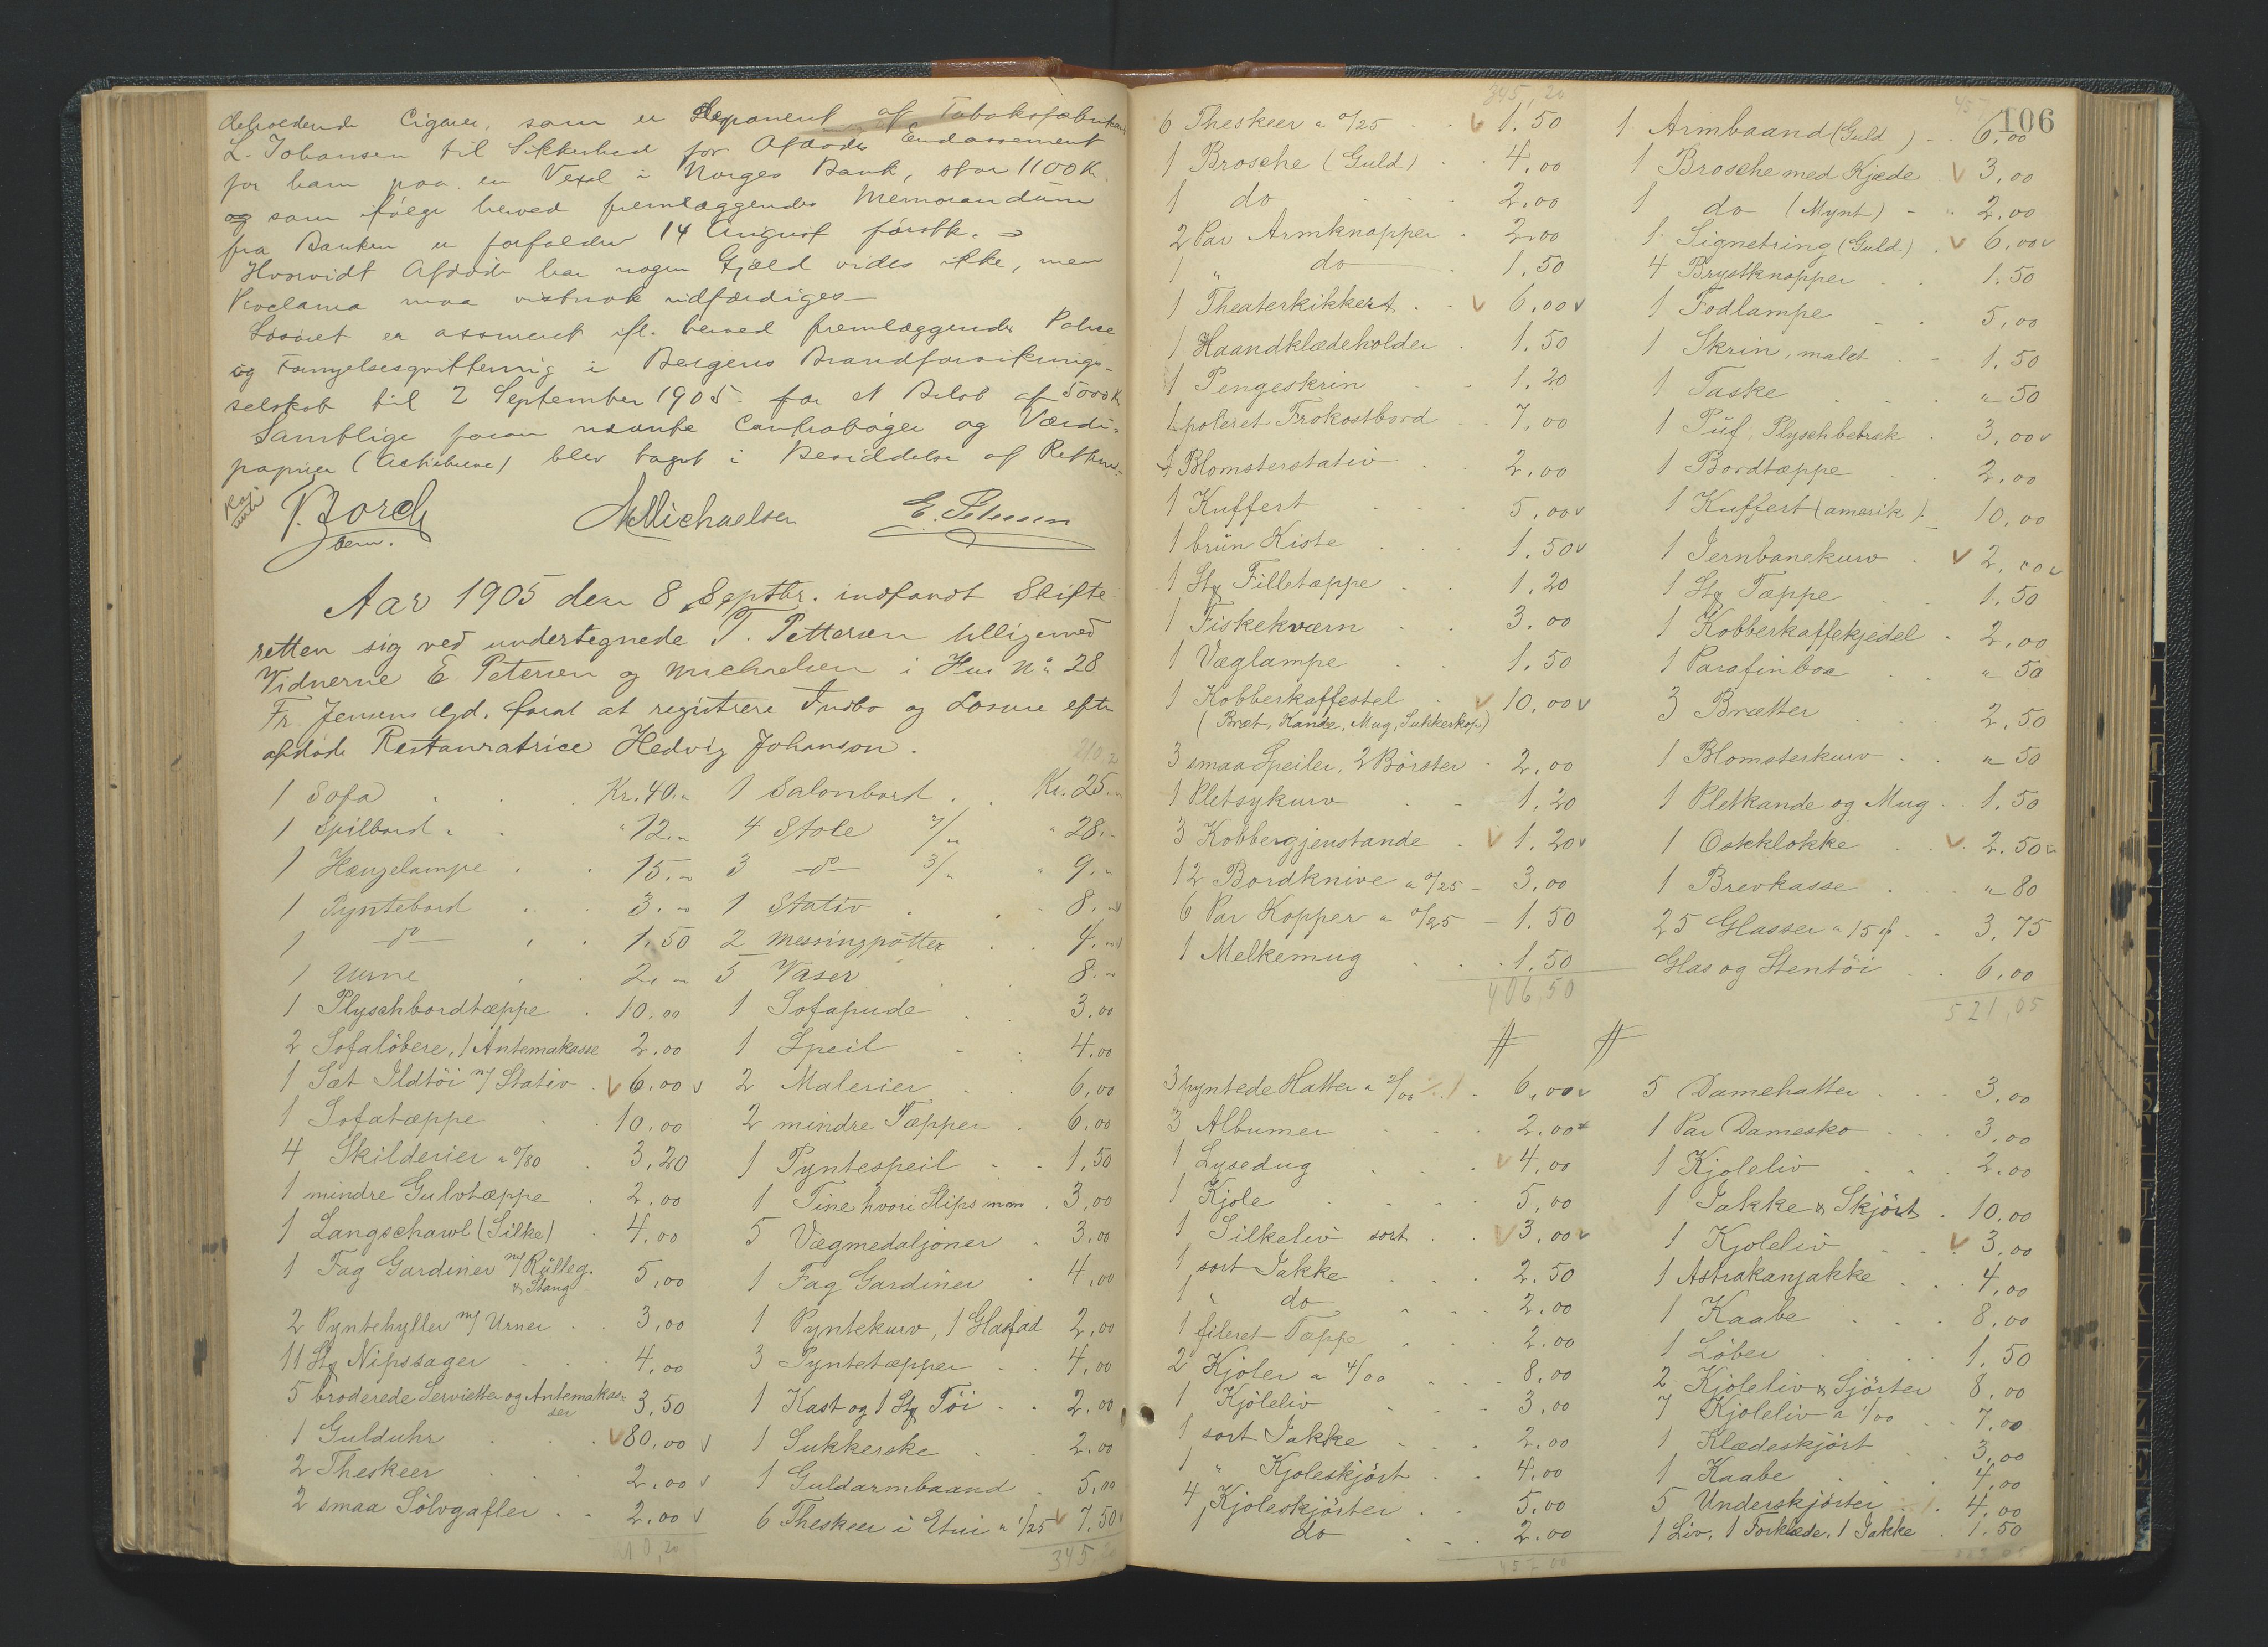 deholdende Cigarer, som er deponeret af Tobaksfabrikant
L. Johansen til Sikkerhed for Afdødes Endossement
for ham paa en Vexel i Norges Bank, stor 1100 Kr.
og som ifølge herved fremlæggendes Memorandum
fra Banken er forfalden 14 August førstk.
Hvorvidt Afdøde har nogen Gjæld vides ikke, men
Proclama maa vistnok udfærdiges
Løsøret er assureret ifl. herved fremlæggendes Police
og Fornyelsesqvittering i Bergens Brandforsikrings-
selskab til 2 September 1905 for et Beløb af 5000 Kr
Samtlige foran nævnte Contrabøger og Værdi-
papirer (Actiebreve) blev taget i Besiddelse af Retten
Borch
AMichaelsen
E. Petersen
Aar 1905 den 8 Septbr. indfandt Skifte-
retten sig ved undertegnede T. Pettersen tilligemed
Vidnerne E. Petersen og Michaelsen i Hus No 28
Fr. Jensens Gd. forat at registrere Indbo og Løsøre efter
afdøde Restauratrice Hedvig Johanson.
210,20
1 Sofa Kr. 40."
1 Spilbord " 12."
1 Hængelampe 15."
1 Pyntebord 3."
1 do 1.50
1 Urne 2."
1 Plyschbordtæppe 10.00
2 Sofaløbere, 1 Antemakasse 2.00
1 Sæt Ildtöi m/ Stativ 6.00
1 Sofatæppe 10.00
4 Skilderier a 0/80 3,20
1 mindre Gulvtæppe 2.00
1 Langschawl (Silke) 4,00
1 Fag Gardiner m/ Rülleg.
& Stang 5,00
2 Pyntehyller m/ Urner 3,00
11 Stk Nipssager 4,00
5 broderede Servietter og Antemakas-
ser 3,50
1 Gulduhr 80,00
2 Theskeer 2,00
2 smaa Sölvgafler 2.00
210,20
1 Salonbord Kr. 25."
4 Stole 7/" " 28."
3 do 3/" " 9."
1 Stativ 8."
2 Messingpotter 4."
5 Vaser 8."
1 Sofapude 3,00
1 Speil 4.00
2 Malerier 6,00
2 mindre Tæpper 6.00
1 Pyntespeil 1,50
1 Tine hvori Slips m.m. 3,00
5 Vægmedaljoner 3,00
1 Fag Gardiner 4,00
1 Pyntekurv, 1 Glasfad 2,00
3 Pyntetæpper 4,00
1 Kast og 1 Stk Töi 2,00
1 Sukkerske 2.00
1 Guldarmbaand 5,00
6 Theskeer i Etui a 1/25 7,50
345,20
345,20
6 Theskeer a 0/25 1.50
1 Brosche (Guld) 4,00
1 do 2.00
2 Par Armknapper 2.00
1 " do 1.50
1 Theaterkikkert 6.00
1 Haandklædeholder 1.50
1 Pengeskrin 1.20
1 poleret Frokostbord 7,00
1 Blomsterstativ 2.00
1 Kuffert 5,00
1 brün Kiste 1.50
1 Stk Filletæppe 1.20
1 Fiskekværn 3.00
1 Væglampe 1.50
1 Kobberkaffestel 10,00
(Bræt, Kande, Mug, Sukkerkop)
3 smaa Speiler, 2 Börster 2,00
1 Pletsykurv 1.20
3 Kobbergjenstande 1.20
12 Bordknive a 0/25 3,00
6 Par Kopper a 0/25 1.50
1 Melkemug 1.50
406,50
3 pyntede Hatter a 2/00 6,00
3 Albumer 2.00
1 Lysedug 4,00
1 Kjole 5,00
1 Silkeliv sort 3,00
1 sort Jakke 2.50
1 " do 2.00
1 fileret Tæppe 2.00
2 Kjoler a 4/00 8,00
1 Kjöleliv 3,00
1 sort Jakke 2.00
1 " Kjoleskjört 4.00
4 Kjoleskjörter 5.00
1 do 2.00
457,00
106
1 Armbaand (Guld) 6,00
1 Brosche med Kjæde 3,00
1 do (Mynt) 2,00
1 Signetring (Guld) 6,00
4 Brystknapper 1.50
1 Fodlampe 5,00
1 Skrin, malet 1.50
1 Taske " 50
1 Püf, Plyschbetræk 3,00
1 Bordtæppe 2,00
1 Kuffert (amerik) 10,00
1 Jernbanekurv 2,00
1 Stk Tæppe 1.50
1 Kobberkaffekjedel 2,00
1 Parafinbox " 50
3 Brætter 2.50
1 Blomsterkurv " 50
1 Pletkande og Mug 1.50
1 Ostklokke 2.50
1 Brevkasse " 80
25 Glasser a 15 ø 3,75
Glas og Stentöi 6,00
521,05
5 Damehatter 3,00
1 Par Damesko 3,00
1 Kjoleliv 2.00
1 Jakke & Skjört 10,00
1 Kjoleliv 3,00
1 Astrakanjakke 4,00
1 Kaabe 8,00
1 Löber 1,50
2 Kjöleliv & Sjörter 8,00
7 Kjoleliv a 1/00 7,00
1 Klædeskjört 3,00
1 Kaabe 4,00
5 Underskjörter 4,00
1 Liv, 1 Forklæde, 1 Jakke 1,50